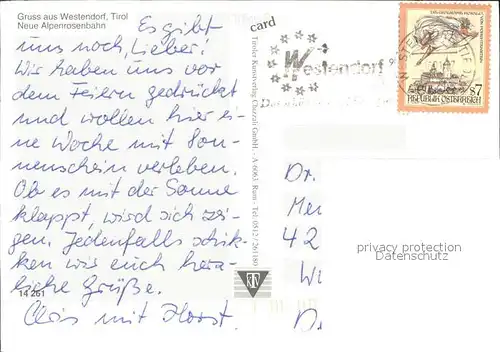 Gruss aus Westendorf, Tirol
Neue Alpenrosenbahn
Es gibt
uns noch, Lieber!
Wir haben uns vor
dem Feiern gedrückt
und wollen hier ei-
ne Woche mit Son-
nenschein verleben.
Ob es mit der Sonne
klappt, wird sich zei-
gen. Jedenfalls schik-
ken wir euch herz-
liche Grüße.
Chris mit Horst.
14 261
card
Tiroler Kunstverlag Chizzali GmbH., A-6063 Rum - Tel. 0512/261180
KTV
Westendorf
REPUBLIK ÖSTERREICH
S7
Dr.
Me
42
W
D
privacy protection
Datenschutz